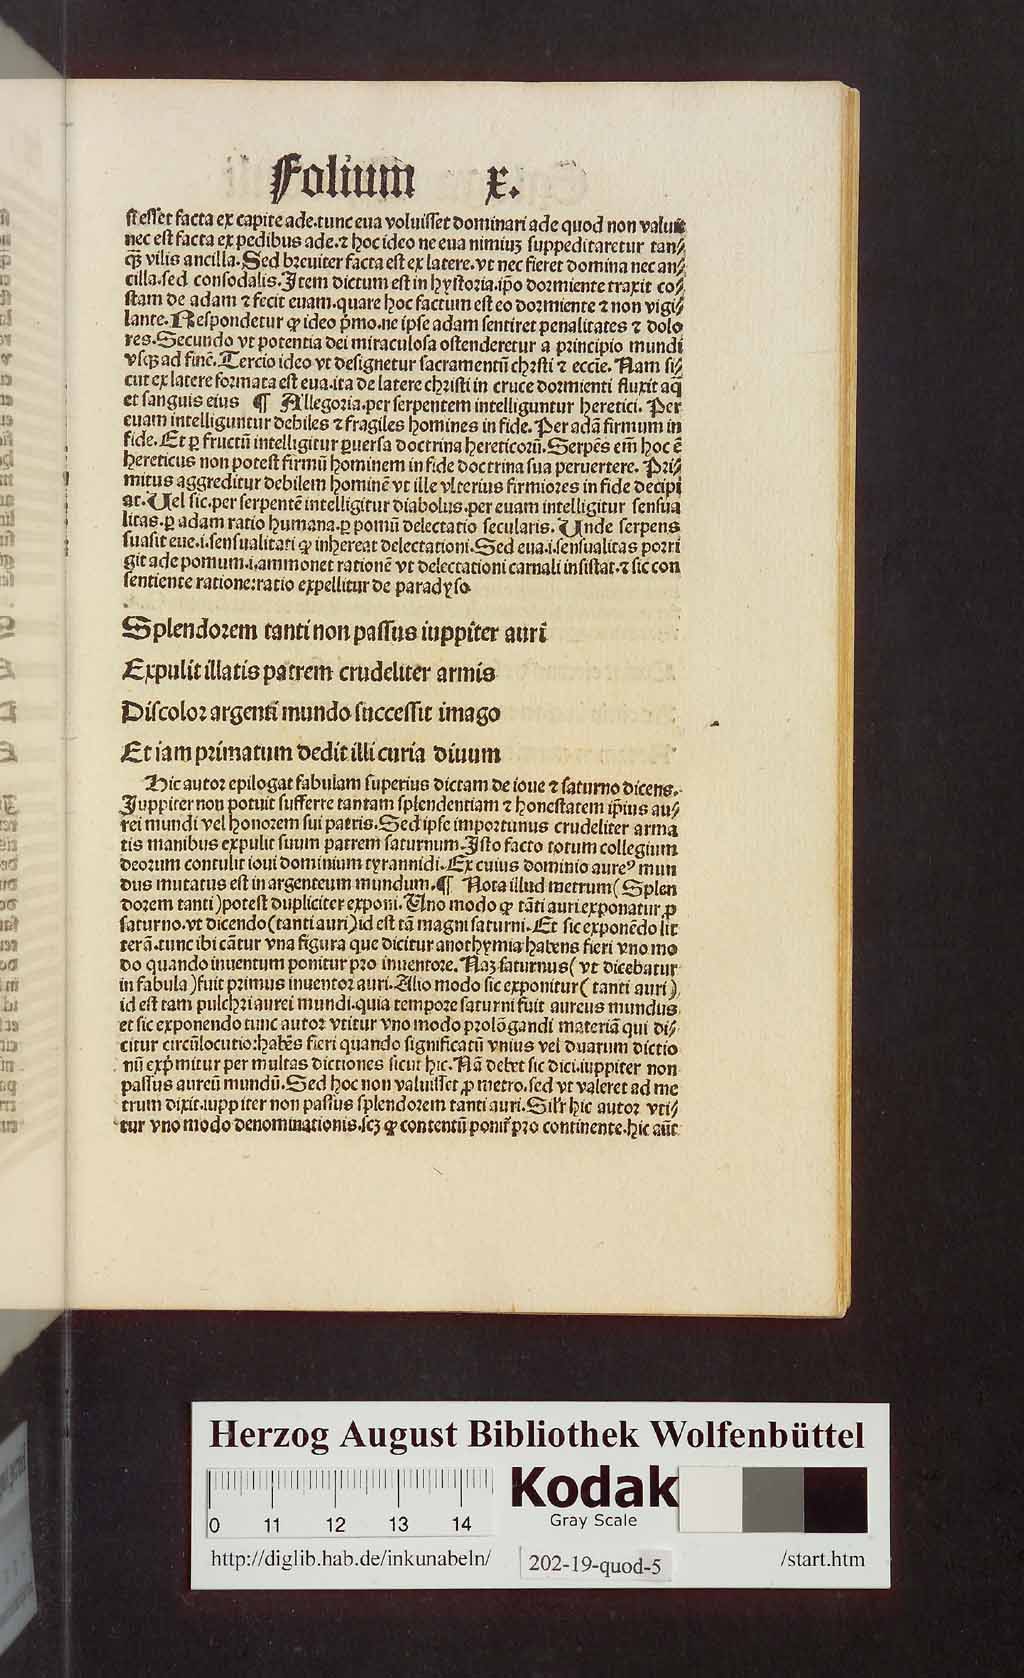 Folium x.
st esset facta ex capite ade.tunc eua voluisset dominari ade quod non valuit
nec est facta ex pedibus ade.⁊ hoc ideo ne eua nimiuꝫ suppeditaretur tan⸗
qꝫ vilis ancilla. Sed breuiter facta est ex latere. vt nec fieret domina nec an⸗
cilla.sed consodalis. Item dictum est in hystoria.ip̄o dormiente traxit co⸗
stam de adam ⁊ fecit euam.quare hoc factum est eo dormiente ⁊ non vigi⸗
lante. Respondetur ꝙ ideo p̄mo.ne ipse adam sentiret penalitates ⁊ dolo
res. Secundo vt potentia dei miraculosa ostenderetur a principio mundi
vsqꝫ ad finē. Tercio ideo vt designetur sacramentū christi ⁊ eccie. Nam si⸗
cut ex latere formata est eua.ita de latere christi in cruce dormienti fluxit aq̄
et sanguis eius ¶ Allegoria.per serpentem intelliguntur heretici. Per
euam intelliguntur debiles ⁊ fragiles homines in fide. Per adā firmum in
fide. Et ꝑ fructū intelligitur ꝑuersa doctrina hereticorū. Serpēs em̄ hoc ē
hereticus non potest firmū hominem in fide doctrina sua peruertere. Pri⸗
mitus aggreditur debilem hominē vt ille vlterius firmiores in fide decipi
at. Uel sic.per serpentē intelligitur diabolus.per euam intelligitur sensua
litas.ꝑ adam ratio humana.ꝑ pomū delectatio secularis. Unde serpens
suasit eue.i.sensualitati ꝙ inhereat delectationi. Sed eua.i.sensualitas porri
git ade pomum.i.ammonet rationē vt delectationi carnali insistat.⁊ sic con
sentiente ratione:ratio expellitur de paradyso
Splendorem tanti non passus iuppiter auri
Expulit illatis patrem crudeliter armis
Discolor argenti mundo successit imago
Et iam primatum dedit illi curia diuum
Hic autor epilogat fabulam superius dictam de ioue ⁊ saturno dicens.
Juppiter non potuit sufferre tantam splendentiam ⁊ honestatem ip̄ius au⸗
rei mundi vel honorem sui patris. Sed ipse importunus crudeliter arma
tis manibus expulit suum patrem saturnum. Isto facto totum collegium
deorum contulit ioui dominium tyrannidi. Ex cuius dominio aureꝰ mun
dus mutatus est in argenteum mundum. ¶ Nota illud metrum ( Splen
dorem tanti ) potest dupliciter exponi. Uno modo ꝙ tāti auri exponatur ꝓ
saturno.vt dicendo ( tanti auri ) id est tā magni saturni. Et sic exponēdo lit
terā.tunc ibi cātur vna figura que dicitur anothymia habens fieri vno mo
do quando inuentum ponitur pro inuentore. Naꝫ saturnus ( vt dicebatur
in fabula ) fuit primus inuentor auri. Alio modo sic exponitur ( tanti auri )
id est tam pulchri aurei mundi.quia tempore saturni fuit aureus mundus
et sic exponendo tunc autor vtitur vno modo prolōgandi materiā qui di⸗
citur circūlocutio:habēs fieri quando significatū vnius vel duarum dictio
nū exp̄mitur per multas dictiones sicut hic. Nā debet sic dici.iuppiter non
passus aureū mundū. Sed hoc non valuisset ꝓ metro.sed vt valeret ad me
trum dixit.iuppiter non passus splendorem tanti auri. Silr̄ hic autor vti⸗
tur vno modo denominationis.scꝫ ꝙ contentū ponit̄ pro continente.hic aūt
Herzog August Bibliothek Wolfenbüttel
Kodak
Gray Scale
0 11 12 13 14
http://diglib.hab.de/inkunabeln/ 202-19-quod-5 /start.htm